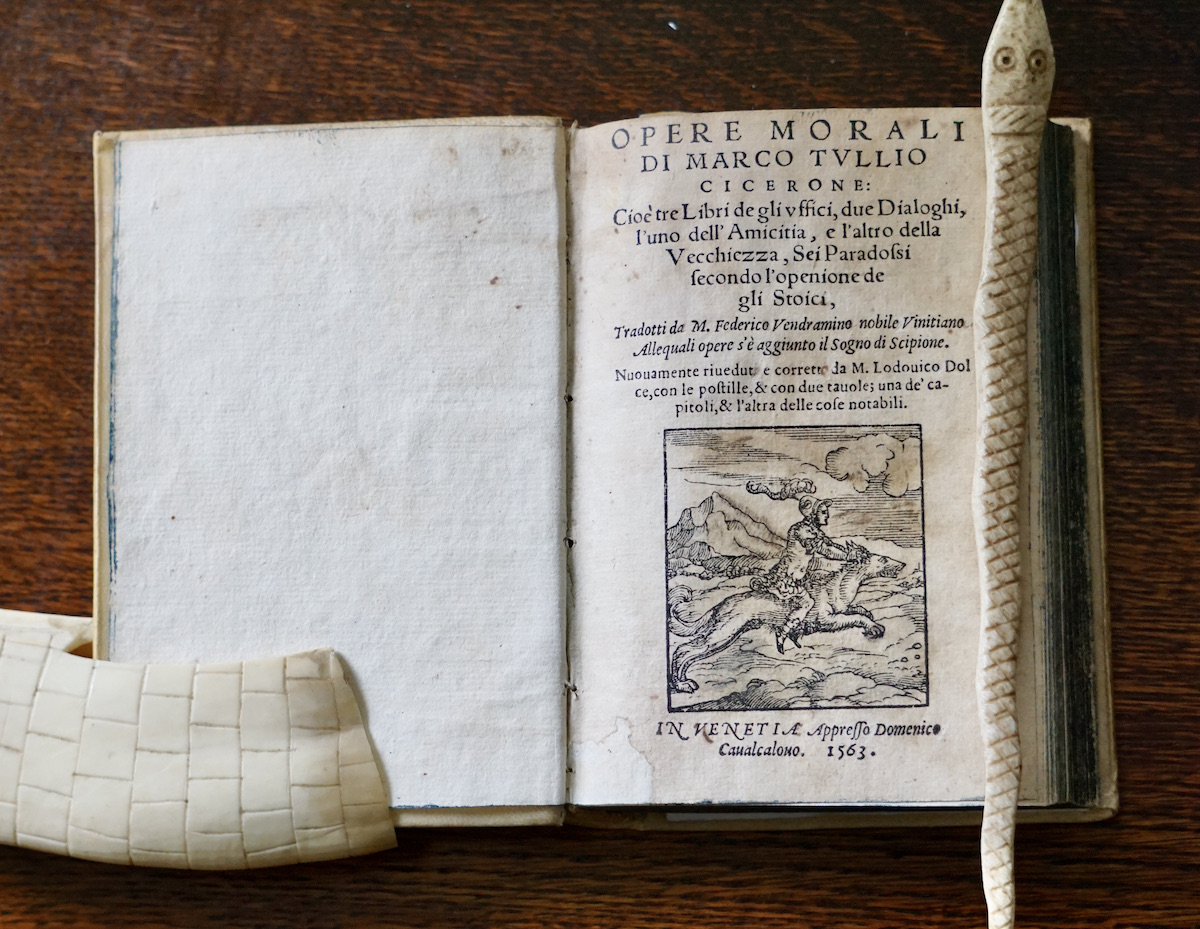 OPERE MORALI
DI MARCO TVLLIO
CICERONE:
Cioè tre Libri de gli vffici, due Dialoghi,
l'uno dell'Amicitia, e l'altro della
Vecchiezza, Sei Paradossi
secondo l'openione de
gli Stoici,
Tradotti da M. Federico Vendramino nobile Vinitiano
Allequali opere s'è aggiunto il Sogno di Scipione.
Nuouamente riuedute e corrette da M. Lodouico Dol
ce, con le postille, & con due tauole; una de' ca-
pitoli, & l'altra delle cose notabili.
IN VENETIA Appresso Domenico
Caualcalouo. 1563.